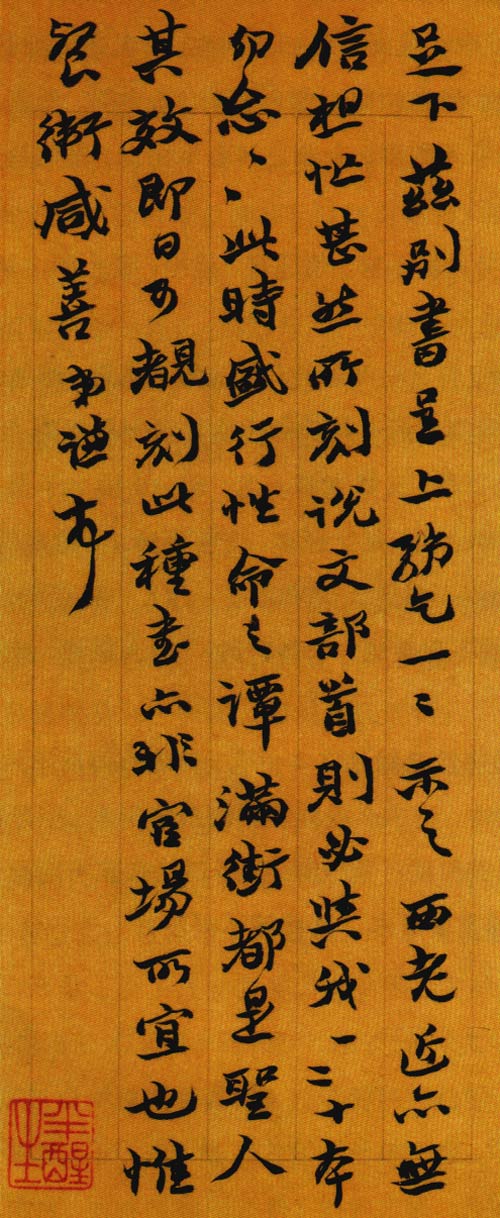 足下茲別書呈上務乞一〻示之西老近亦無
信想忙甚然所刻說文部首則必與我一二十本
勿忘〻〻此時盛行性命之譚滿街都是聖人
其效即日可覩刻此種書亦非官場所宜也惟
餐衛咸善弟